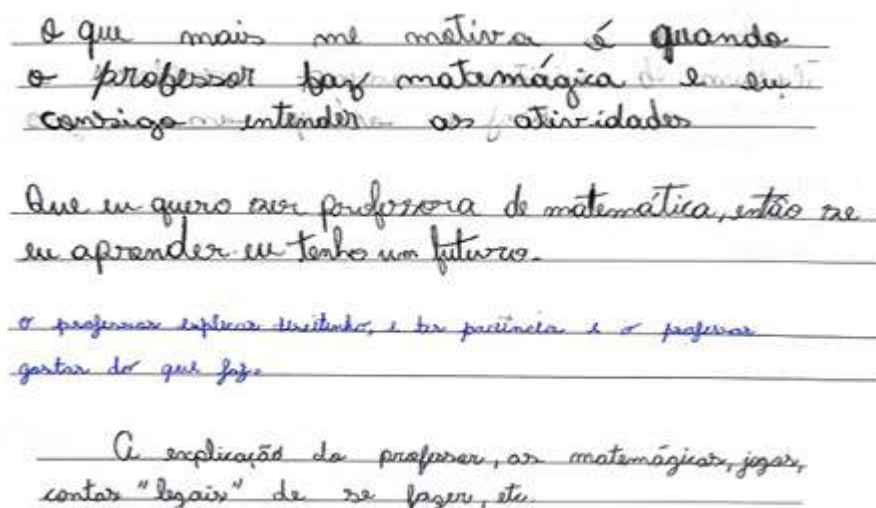 O que mais me motiva é quando
o professor faz matemágica e eu
consigo entender as atividades
Que eu quero ser professora de matemática, então se
eu aprender eu tenho um futuro.
o professor explicar direitinho, e ter paciência e o professor
gostar do que faz.
A explicação do professor, as matemágicas, jogos,
contas "legais" de se fazer, etc.